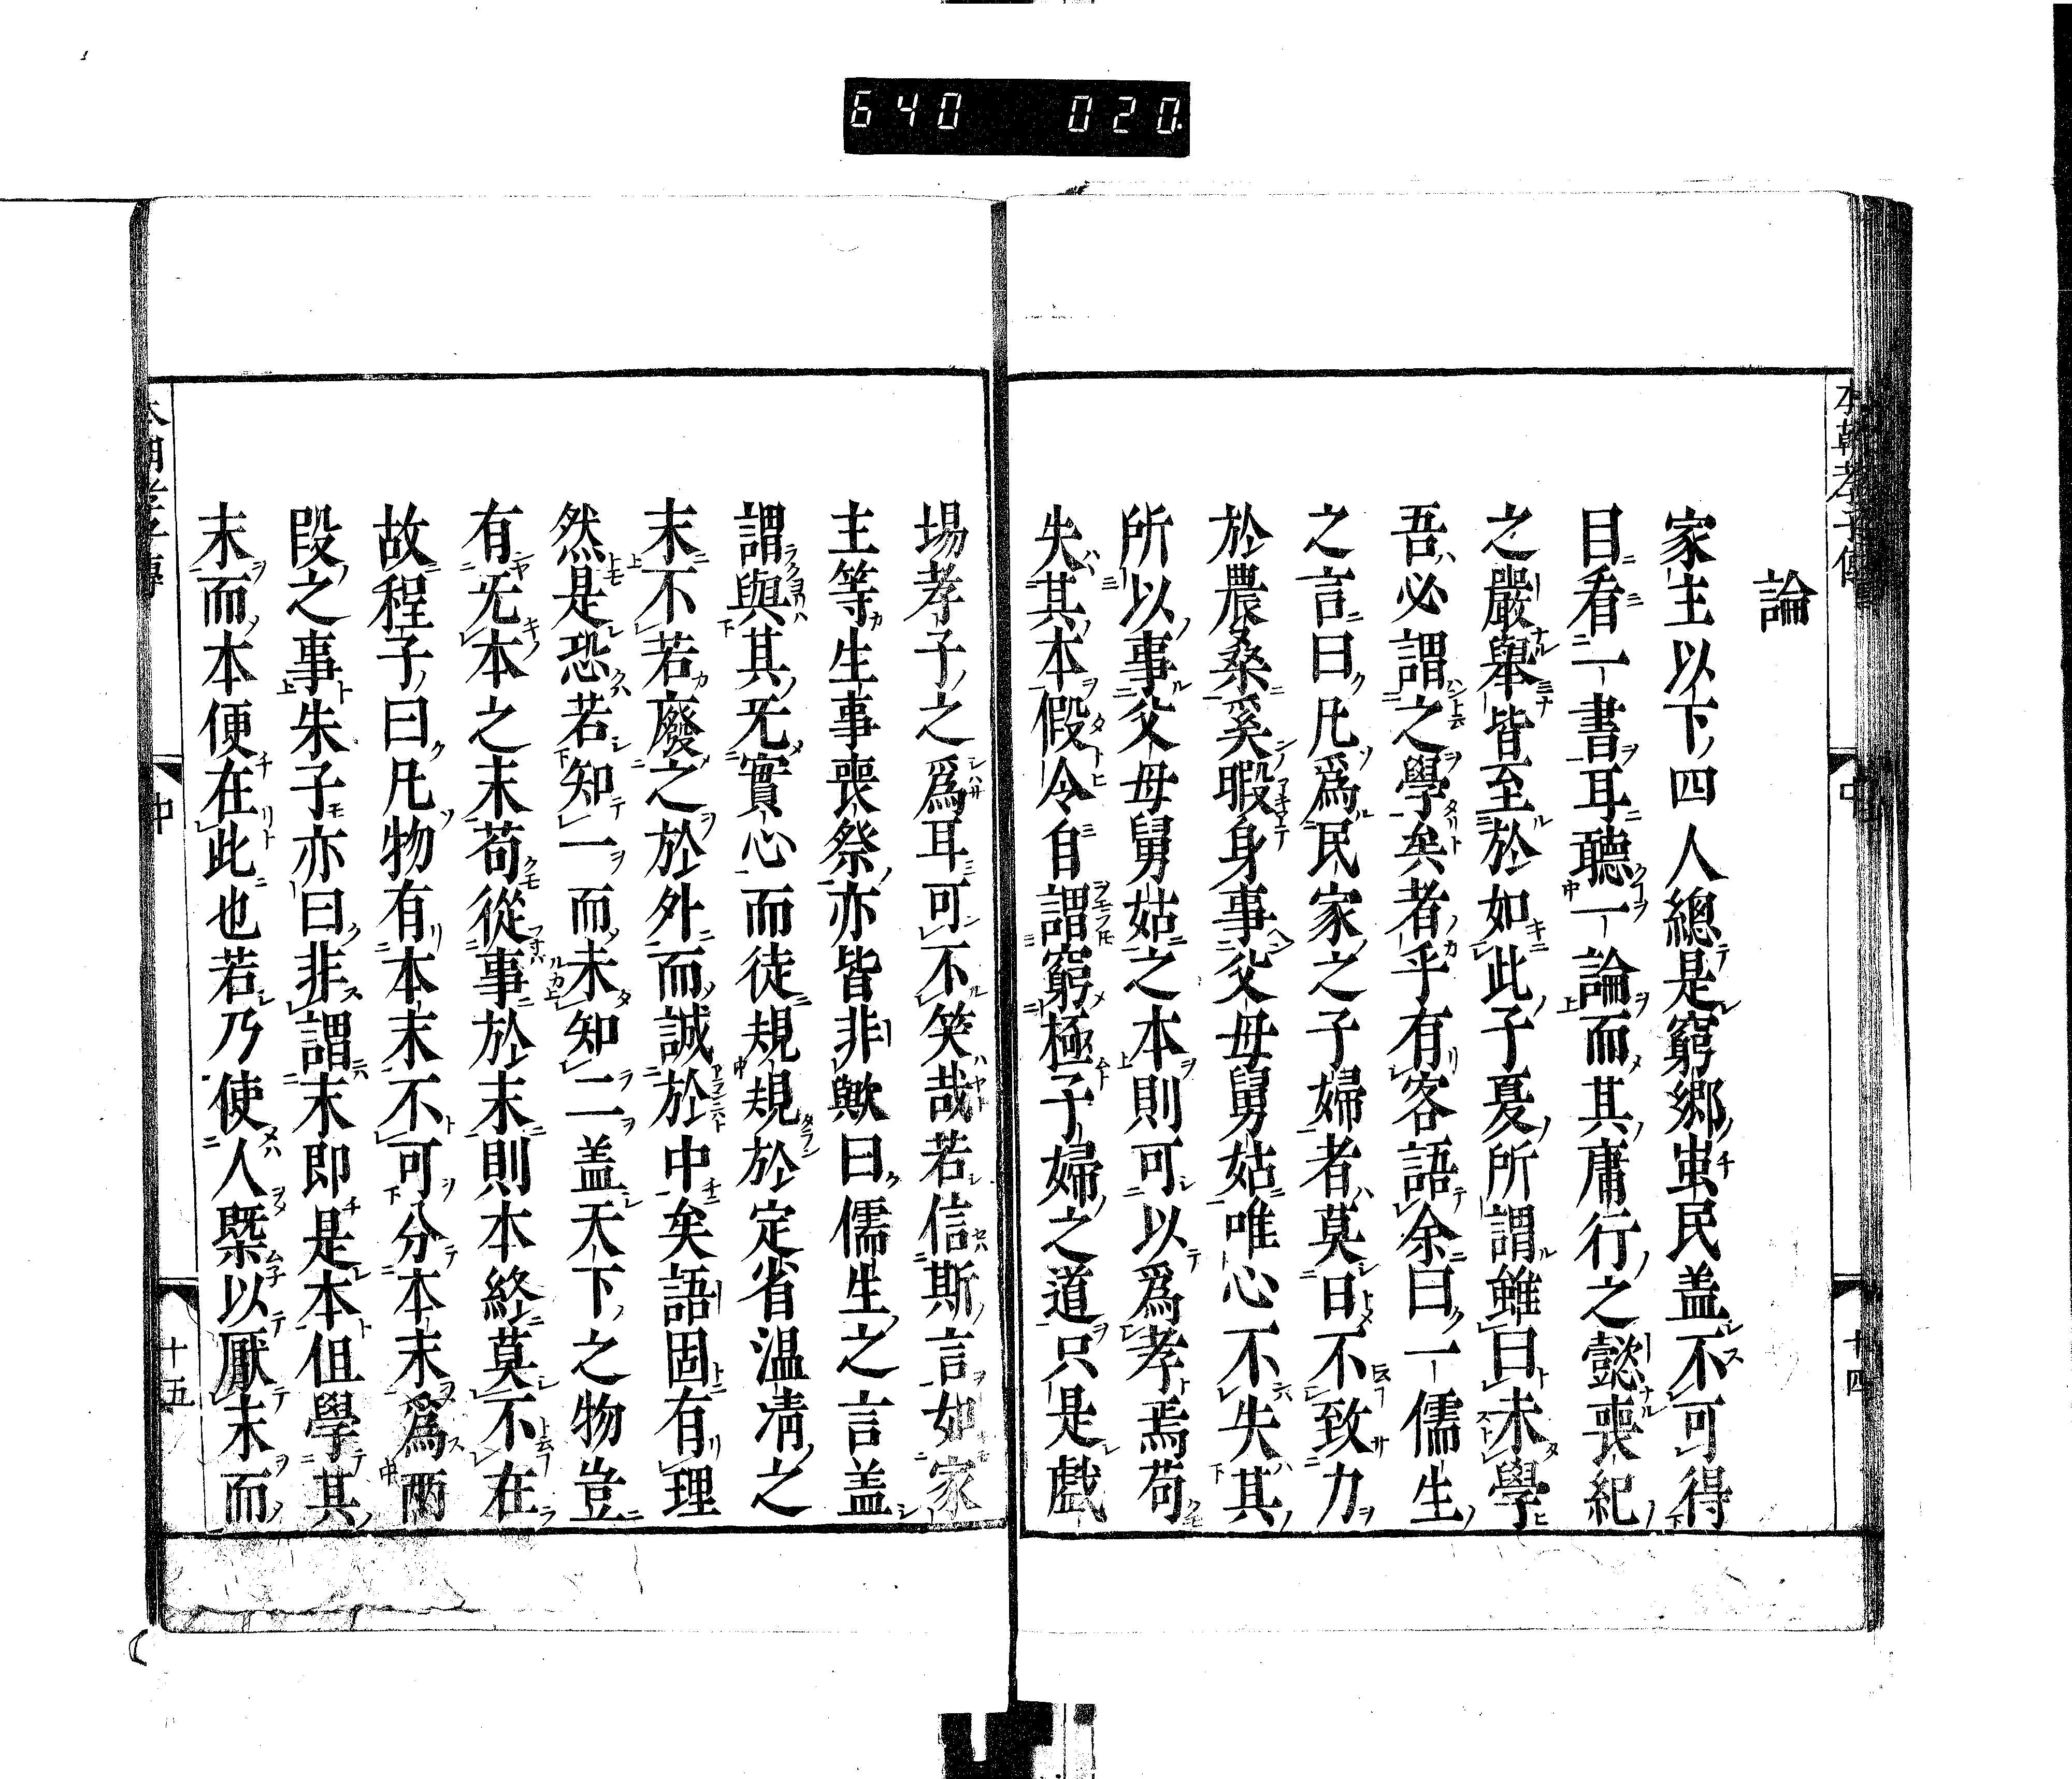 640 020.
本朝孝子傳 中 十四
論
家主以下四人總是窮鄉蚩民盖不可得
目看一書耳聽一論而其庸行之懿喪紀
之嚴舉皆至於如此子夏所謂雖曰未學
吾必謂之學矣者乎有客語余曰一儒生
之言曰凡爲民家之子婦者莫曰不致力
於農桑奚暇身事父母舅姑唯心不失其
所以事父母舅姑之本則可以爲孝焉苟
失其本假令自謂窮極子婦之道只是戲
場孝子之爲耳可不笑哉若信斯言如家
主等生事喪祭亦皆非歟曰儒生之言盖
謂與其无實心而徒規規於定省温凊之
末不若廢之於外而誠於中矣語固有理
然是恐若知一而未知二盖天下之物豈
有无本之末苟從事於末則本終莫不在
故程子曰凡物有本末不可分本末爲兩
段之事朱子亦曰非謂末即是本但學其
末而本便在此也若乃使人槩以厭末而
本朝孝子傳 中 十五